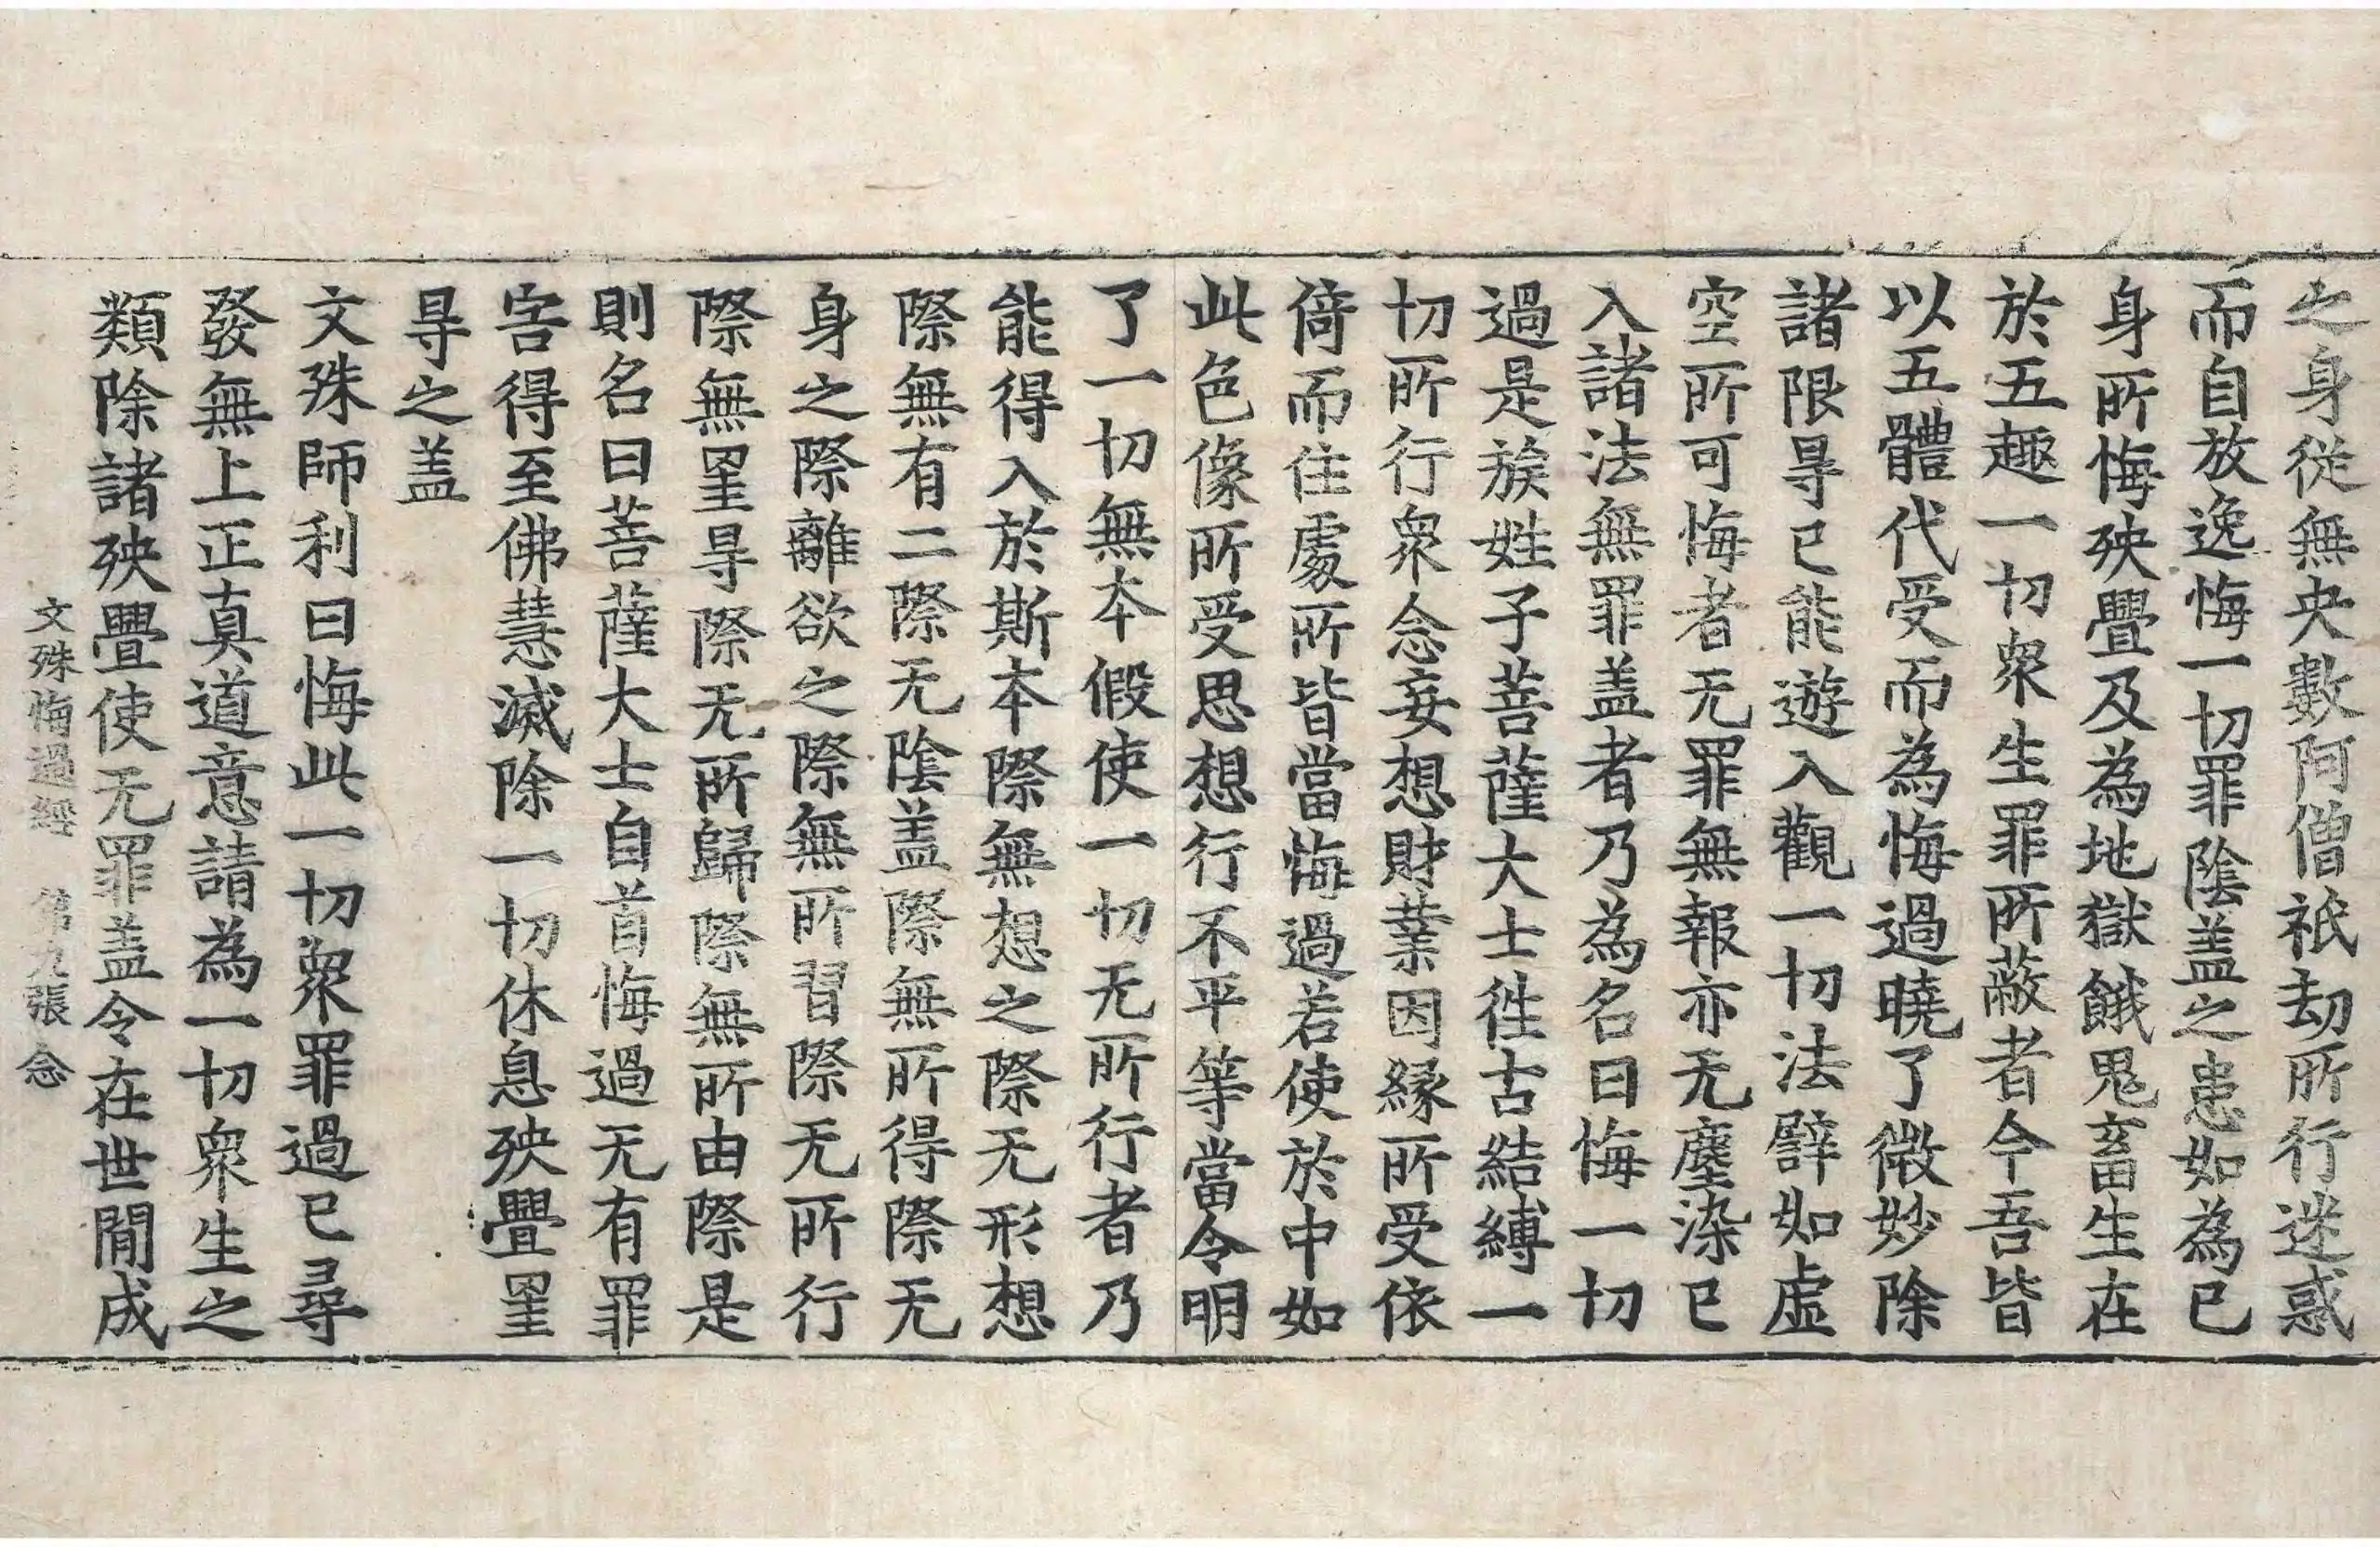 之身從無央數阿僧祇劫所行迷惑
而自放逸悔一切罪陰盖之患如為已
身所悔殃舋及為地獄餓鬼畜生在
於五趣一切衆生罪所蔽者今吾皆
以五體代受而為悔過曉了微妙除
諸限㝵已能遊入觀一切法譬如虛
空所可悔者无罪無報亦无塵染已
入諸法無罪盖者乃為名曰悔一切
過是族姓子菩薩大士徃古結縛一
切所行衆念妄想財業因緣所受依
倚而住處所皆當悔過若使於中如
此色像所受思想行不平等當令明
了一切無本假使一切无所行者乃
能得入於斯本際無想之際无形想
際無有二際无陰盖際無所得際无
身之際離欲之際無所習際无所行
際無罣㝵際无所歸際無所由際是
則名曰菩薩大士自首悔過无有罪
害得至佛慧滅除一切休息殃舋罣
㝵之盖
文殊師利曰悔此一切衆罪過已尋
發無上正真道意請為一切衆生之
類除諸殃舋使无罪盖令在世間成
文殊悔過經　第九張　念